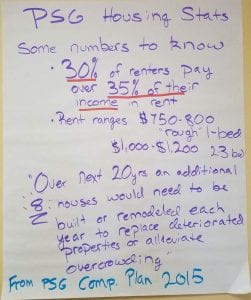 PSG Housing Stats
Some numbers to know
• 30% of renters pay
over 35% of their
income in rent
• Rent ranges $750-800
"rough" 1-bed
$1,000-$1,200 23 bed
"Over next 20yrs an additional
8 houses would need to be
built or remodeled each
year to replace deteriorated
properties or alleviate
overcrowding"
From PSG Comp. Plan 2015